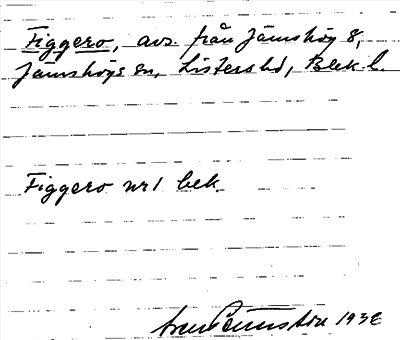 Figgero, avs. från Jämshög 8,
Jämshögs sn, Listers hd, Blek. l.
Figgero nr 1 bek.
1932